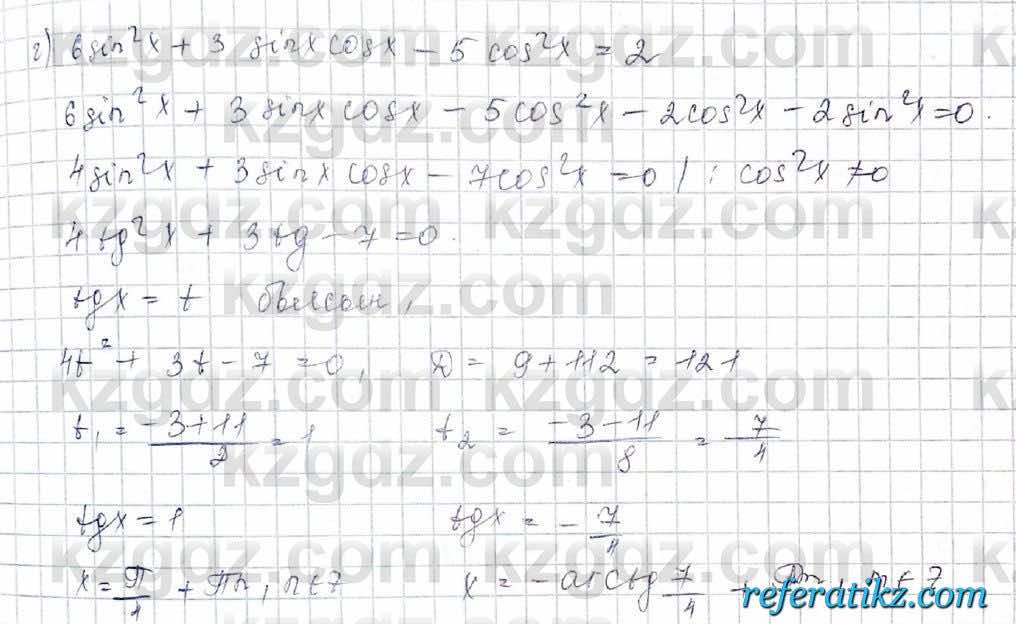 г) 6sin²x + 3 sinx cosx - 5 cos²x = 2
6sin²x + 3 sinx cosx - 5cos²x - 2cos²x - 2sin²x = 0.
4sin²x + 3sinx cosx - 7cos²x = 0 / : cos²x ≠ 0
4tg²x + 3tg - 7 = 0.
tgx = t болсын,
4t² + 3t - 7 = 0, D = 9 + 112 = 121
t₁ = (-3+11)/8 = 1 t₂ = (-3-11)/8 = -7/4
tgx = 1 tgx = -7/4
x = π/4 + πn, n∈Z x = -arctg 7/4 + πn, n∈Z
kzgdz.com
referatikz.com